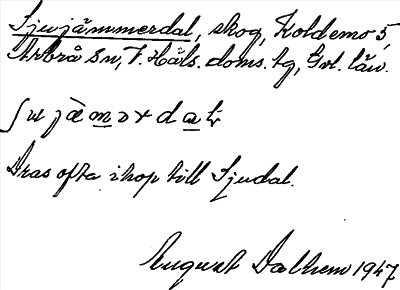 Sjujämmerdal, skog, Koldemo 5,
Arbrå sn, V. Häls. doms. tg, Gvl. län.
Dras ofta ihop till Sjudal.
August Dalhem 1947